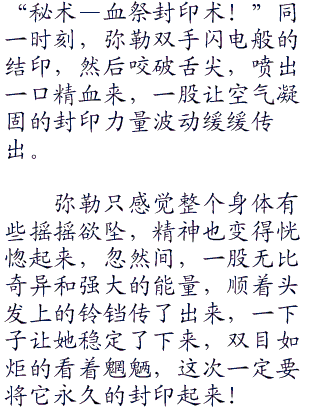 “秘术—血祭封印术！”同
一时刻，弥勒双手闪电般的
结印，然后咬破舌尖，喷出
一口精血来，一股让空气凝
固的封印力量波动缓缓传
出。
弥勒只感觉整个身体有
些摇摇欲坠，精神也变得恍
惚起来，忽然间，一股无比
奇异和强大的能量，顺着头
发上的铃铛传了出来，一下
子让她稳定了下来，双目如
炬的看着魍魉，这次一定要
将它永久的封印起来！